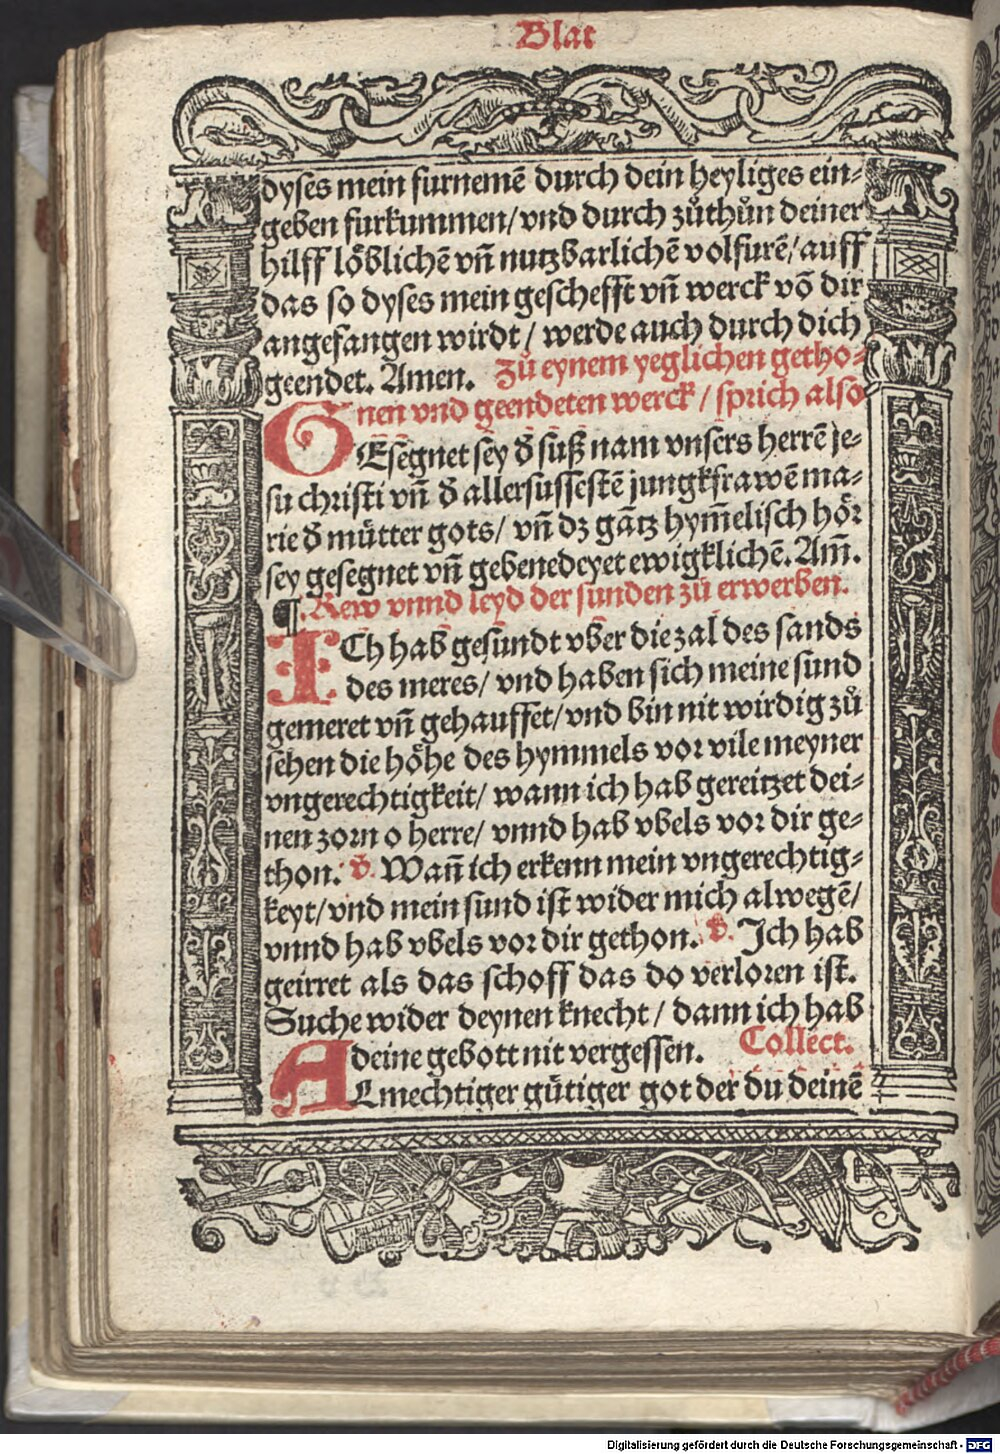 Blat
dyses mein furnemē durch dein heyliges ein⸗
geben furkummen/ vnd durch zůthůn deiner
hilff loͤblichē vñ nutzbarlichē volfurē/ auff
das so dyses mein geschefft vñ werck vō dir
angefangen wirdt / werde auch durch dich
geendet. Amen. Zů eynem yeglichen getho⸗
nen vnd geendeten werck / sprich also
GEsegnet sey đ suß nam vnsers herrē je⸗
su christi vñ đ allersussestē jungkfrawē ma⸗
rie đ muͤtter gots/ vñ dz gātz hym̄elisch hoͤr
sey gesegnet vñ gebenedeyet ewigklichē. Am̄.
¶. Rew vnnd leyd der sunden zů erwerben.
ICh hab gesundt vber die zal des sands
des meres/ vnd haben sich meine sund
gemeret vñ gehauffet/ vnd bin nit wirdig zů
sehen die hoͤhe des hymmels vor vile meyner
vngerechtigkeit/ wann ich hab gereitzet dei⸗
nen zorn o herre/ vnnd hab vbels vor dir ge⸗
thon. v̄. Wañ ich erkenn mein vngerechtig⸗
keyt/ vnd mein sund ist wider mich alwegē/
vnnd hab vbels vor dir gethon. v̄. Ich hab
geirret als das schoff das do verloren ist.
Suche wider deynen knecht / dann ich hab
deine gebott nit vergessen. Collect.
ALmechtiger guͤtiger got der du deinē
Digitalisierung gefördert durch die Deutsche Forschungsgemeinschaft - DFG